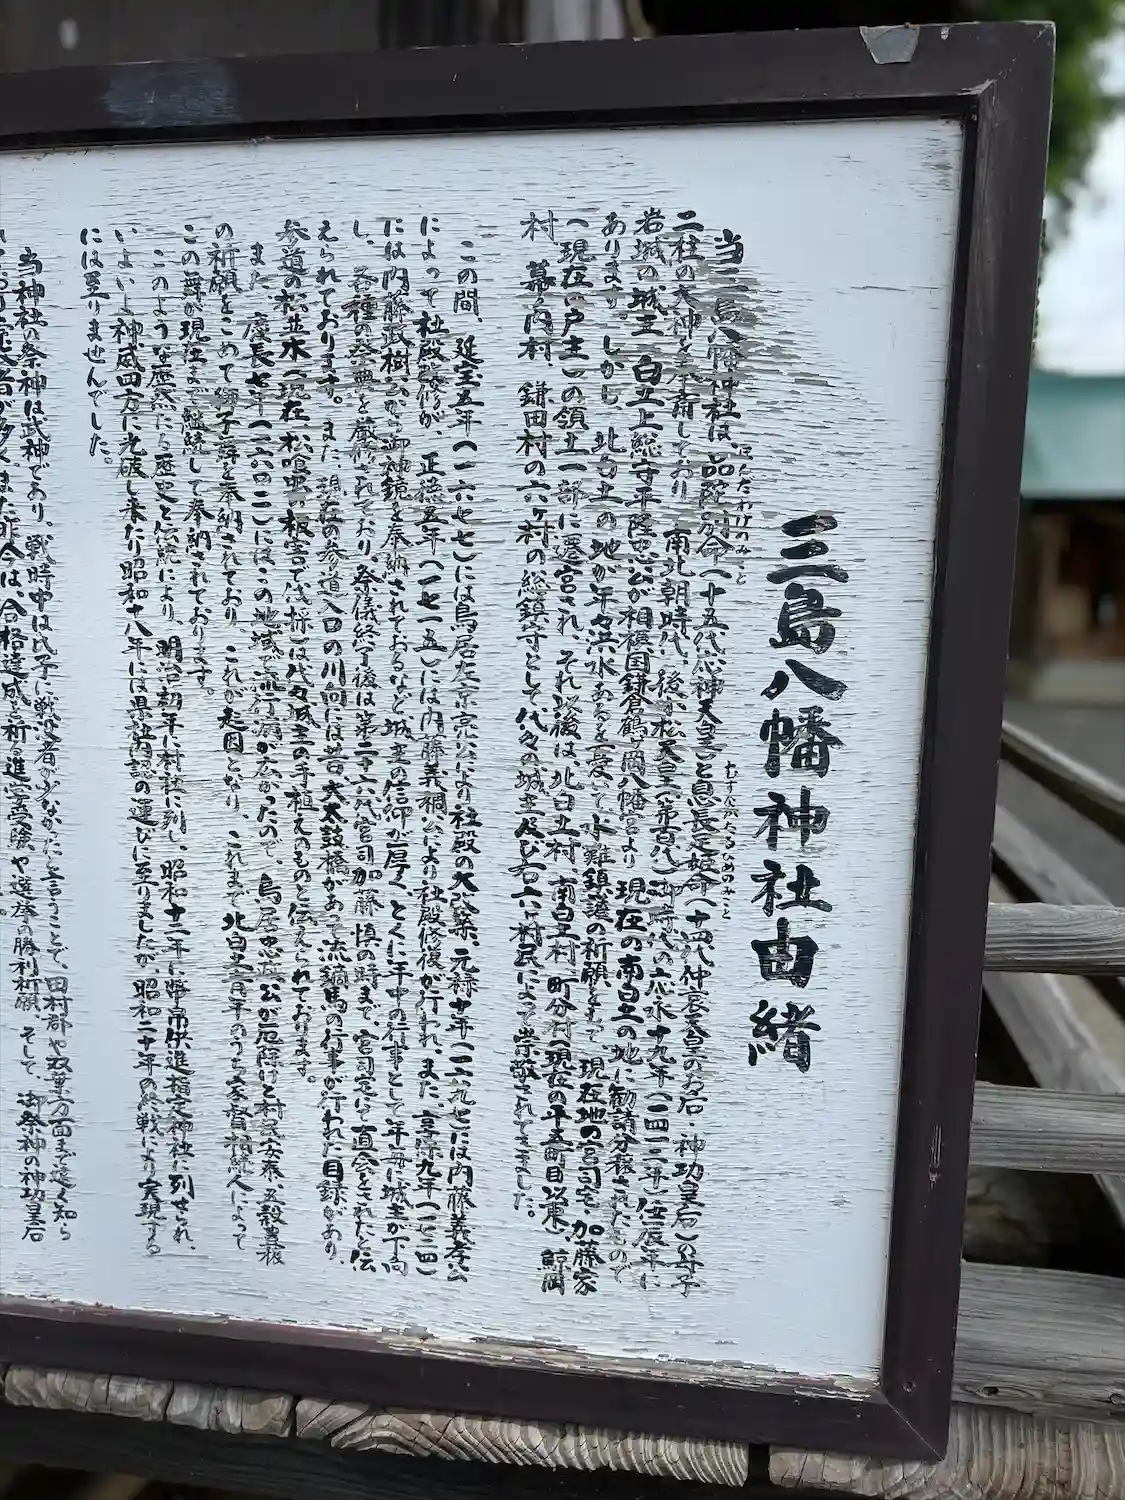 三島八幡神社由緒
当三島八幡神社は、品陀和気命(十五代応神天皇)と息長足姫命(十四代仲哀天皇のお后・神功皇后)の母子
ほんだわけのみこと
むすながたるひめのみこと
二柱の大神を奉斎しており、南北朝時代、後小松天皇(第百八)御時代の応永十九年(一四一二年)壬辰年に
岩城の城主 白土上総守平隆忠公が相模国鎌倉鶴ヶ岡八幡宮より 現在の南白土の地に勧請分霊されたもので
あります。しかし、北白土の地が年々洪水あるを憂いて水難鎮護の祈願をもって 現在地の宮司宅、加藤家
(現在の戸主)の領土一部に遷宮され、それ以後は、北白土村、南白土村、町分村(現在の平五町目以東) 鯨岡
村、幕ノ内村、鎌田村の六ヶ村の総鎮守として代々の城主及び右六ヶ村民によって崇敬されてきました。
この間、延宝五年(一六七七)には鳥居左京亮公により社殿の大改築、元禄十年(一六九七)には内藤義孝公
によって社殿修が、正徳五年(一七一五)には内藤義稠公により社殿修復が行われ、また、享保九年(一七二四)
には内藤政樹公から御神鏡を奉納されておるなど、城主の信仰が厚く、とくに年中の行事として年毎に城主が下向
し、各種の祭典を厳修されており、祭儀終了後は第二十六代宮司加藤 慎の時まで、宮司宅で直会をされたと伝
えられております。また、現在の参道入口の川向には昔、大太鼓橋があって流鏑馬の行事が行われた目録があり、
参道の松並木(現在、松喰虫の被害で伐採)は代々城主の手植えのものと伝えられております。
また、慶長七年(一六〇二)にはこの地域で流行病が広がったので、鳥居忠政公が厄除けと村民安泰、五穀豊穣
の祈願をこめて獅子舞を奉納されており、これが起因となり、これまで北白土青年のうち家督相続人によって
この舞が現在まで継続して奉納されております。
このような歴然たる歴史と伝統により、明治初年に村社に列し、昭和十二年に幣帛供進指定神社に列せられ、
いよいよ神威四方に光被し来たり昭和十八年には県社内認の運びに至りましたが、昭和二十年の終戦により実現する
には至りませんでした。
当神社の祭神は武神であり、戦時中は氏子に戦没者が少なかったと言うことで、田村郡や双葉方面まで遠く知ら
れており崇敬者が多く、また昨今は、合格達成を祈る進学受験や選挙の勝利祈願、そして、御祭神の神功皇后